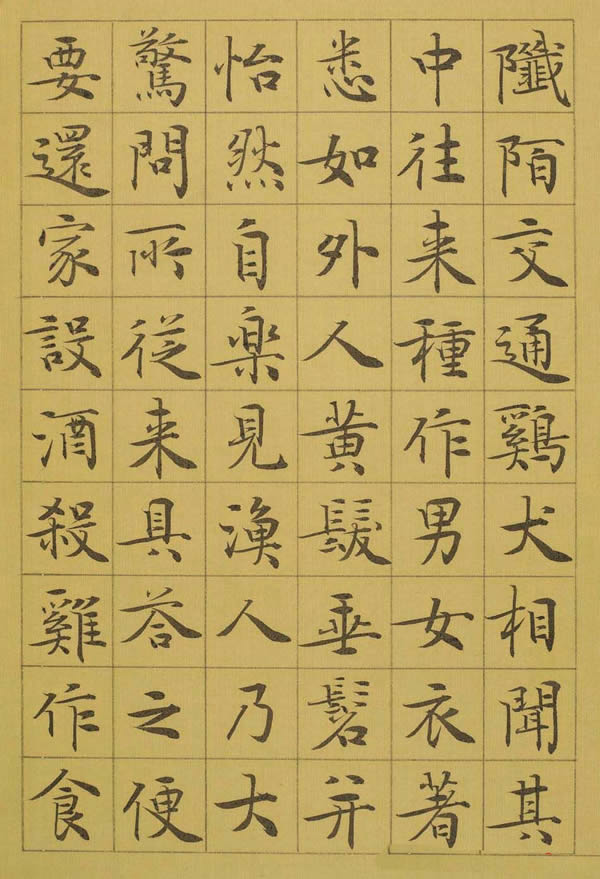 陌交通鷄犬相聞其
中往来種作男女衣著
悉如外人黄髮垂髫并
怡然自楽見漁人乃大
驚問所従来具荅之便
要還家設酒殺雞作食